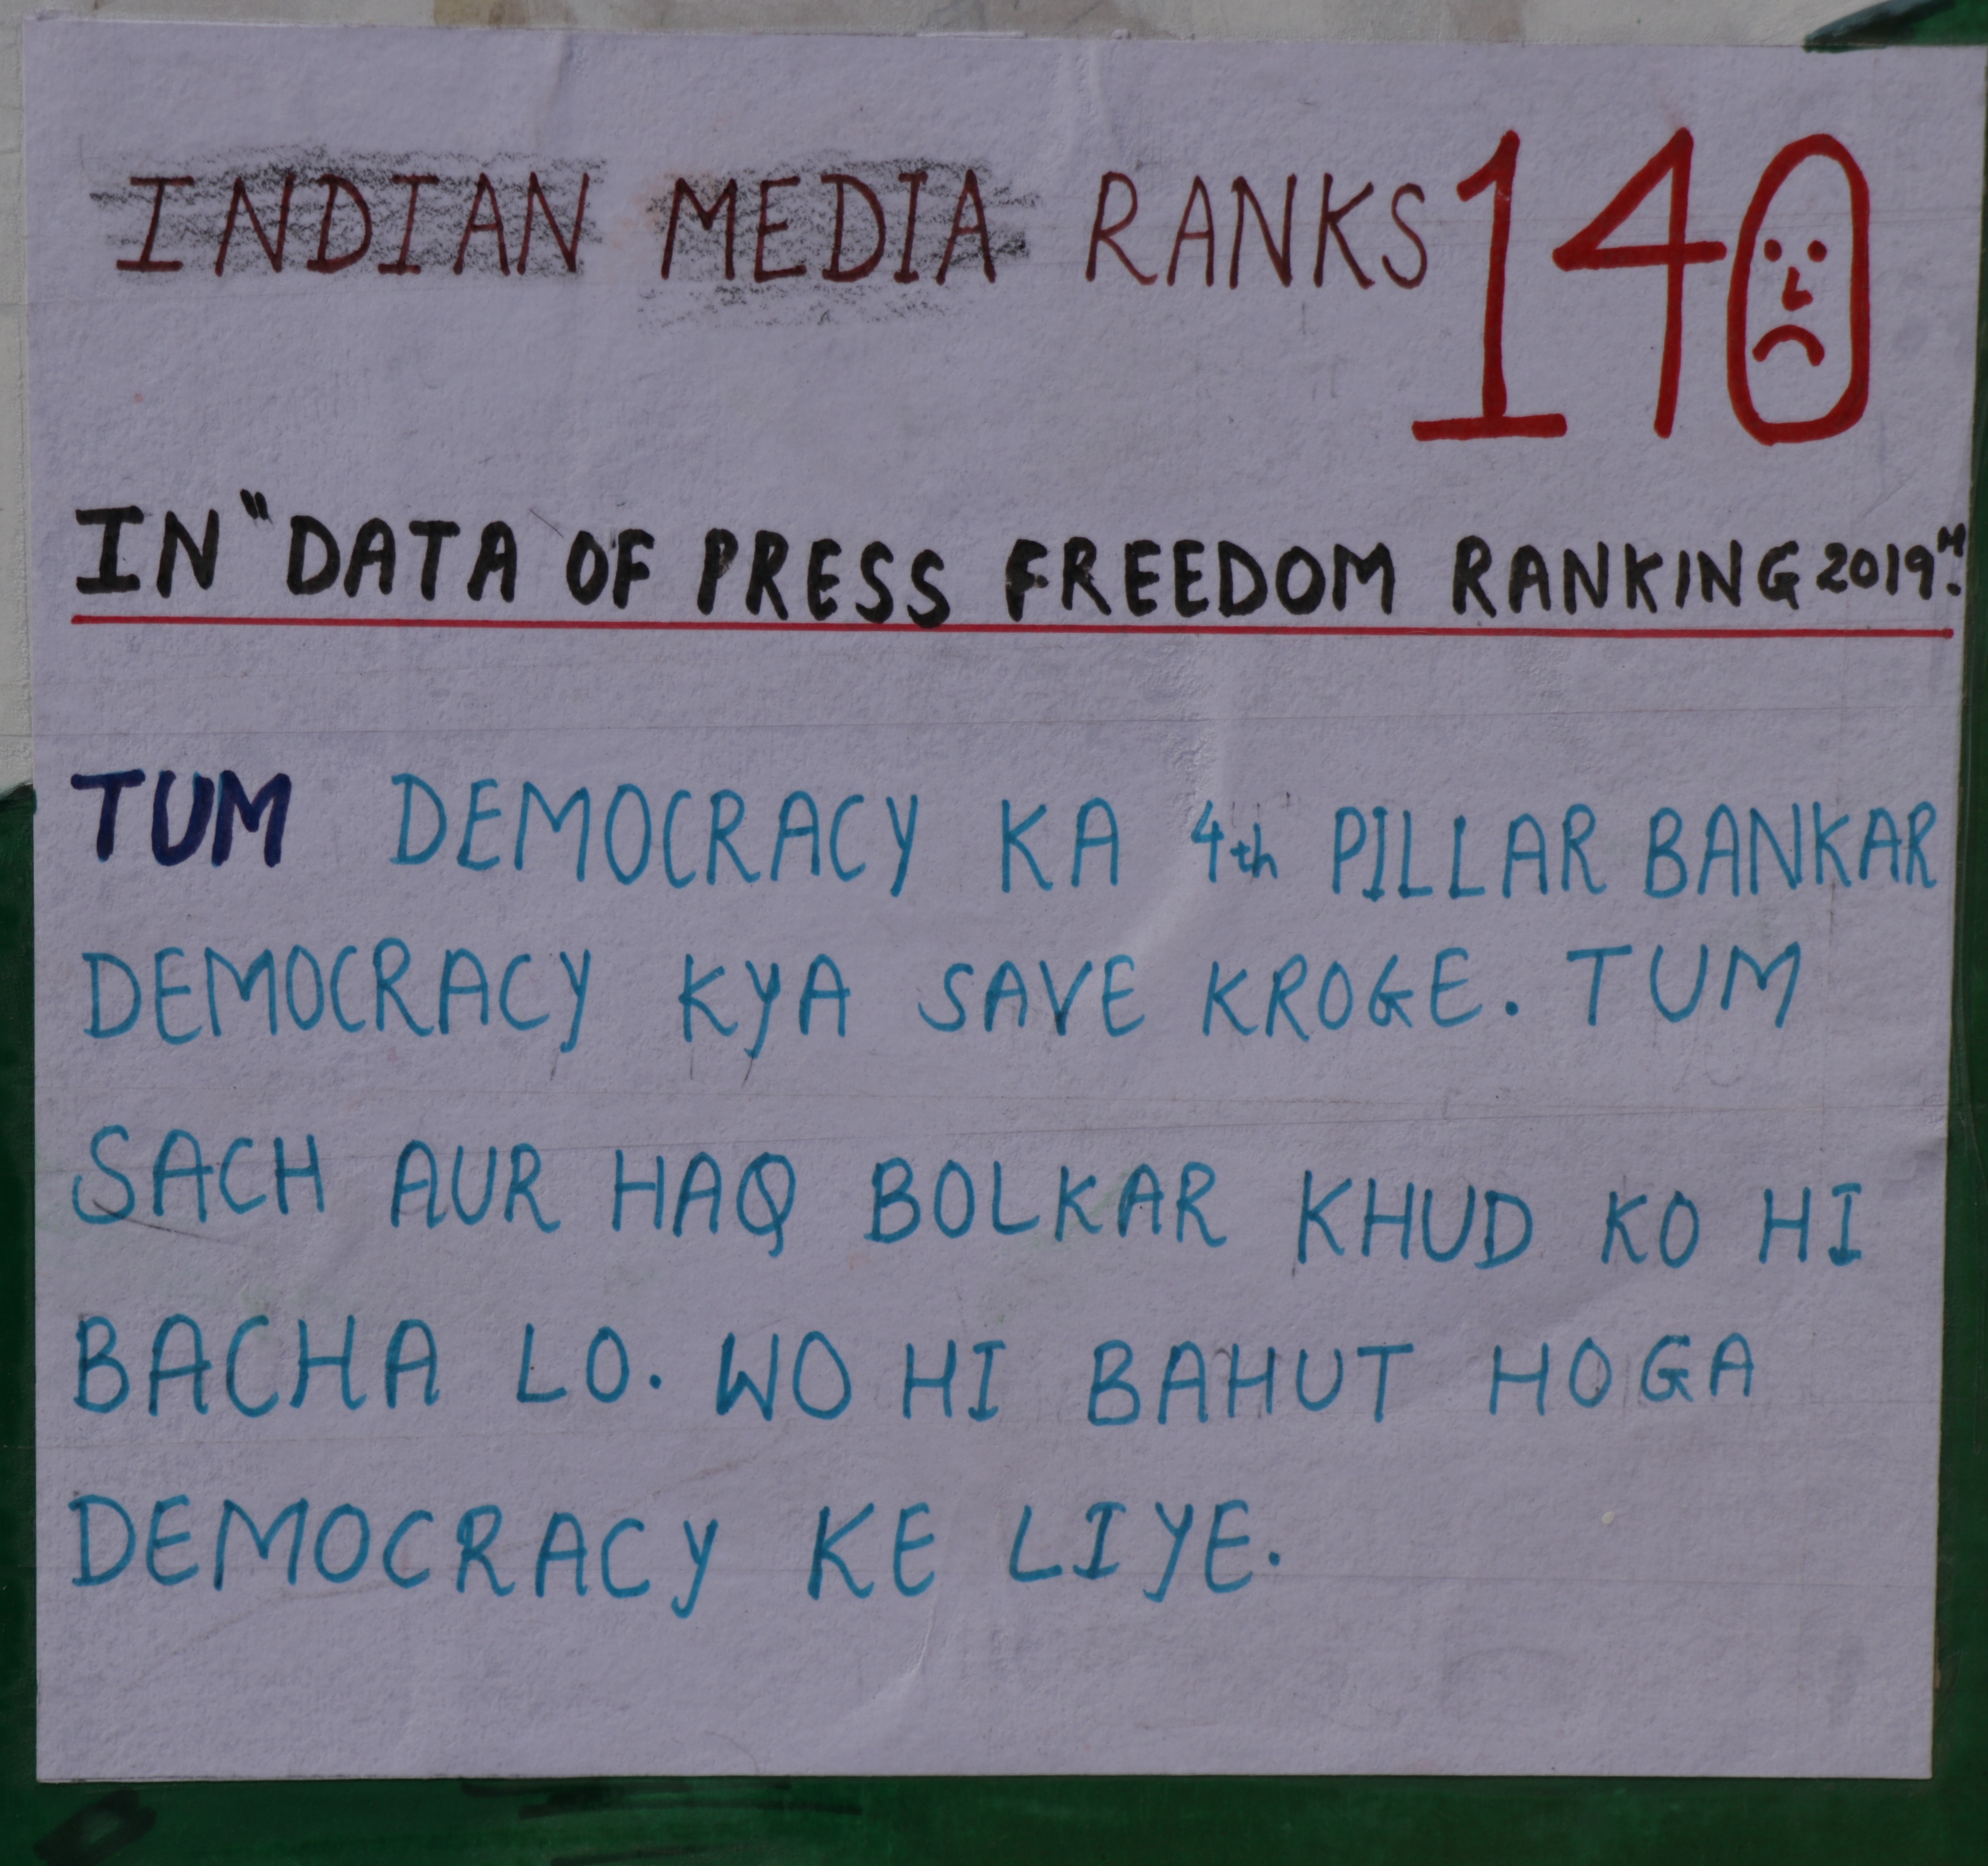 INDIAN MEDIA RANKS 140
IN "DATA OF PRESS FREEDOM RANKING 2019".
TUM DEMOCRACY KA 4th PILLAR BANKAR
DEMOCRACY KYA SAVE KROGE. TUM
SACH AUR HAQ BOLKAR KHUD KO HI
BACHA LO. WO HI BAHUT HOGA
DEMOCRACY KE LIYE.